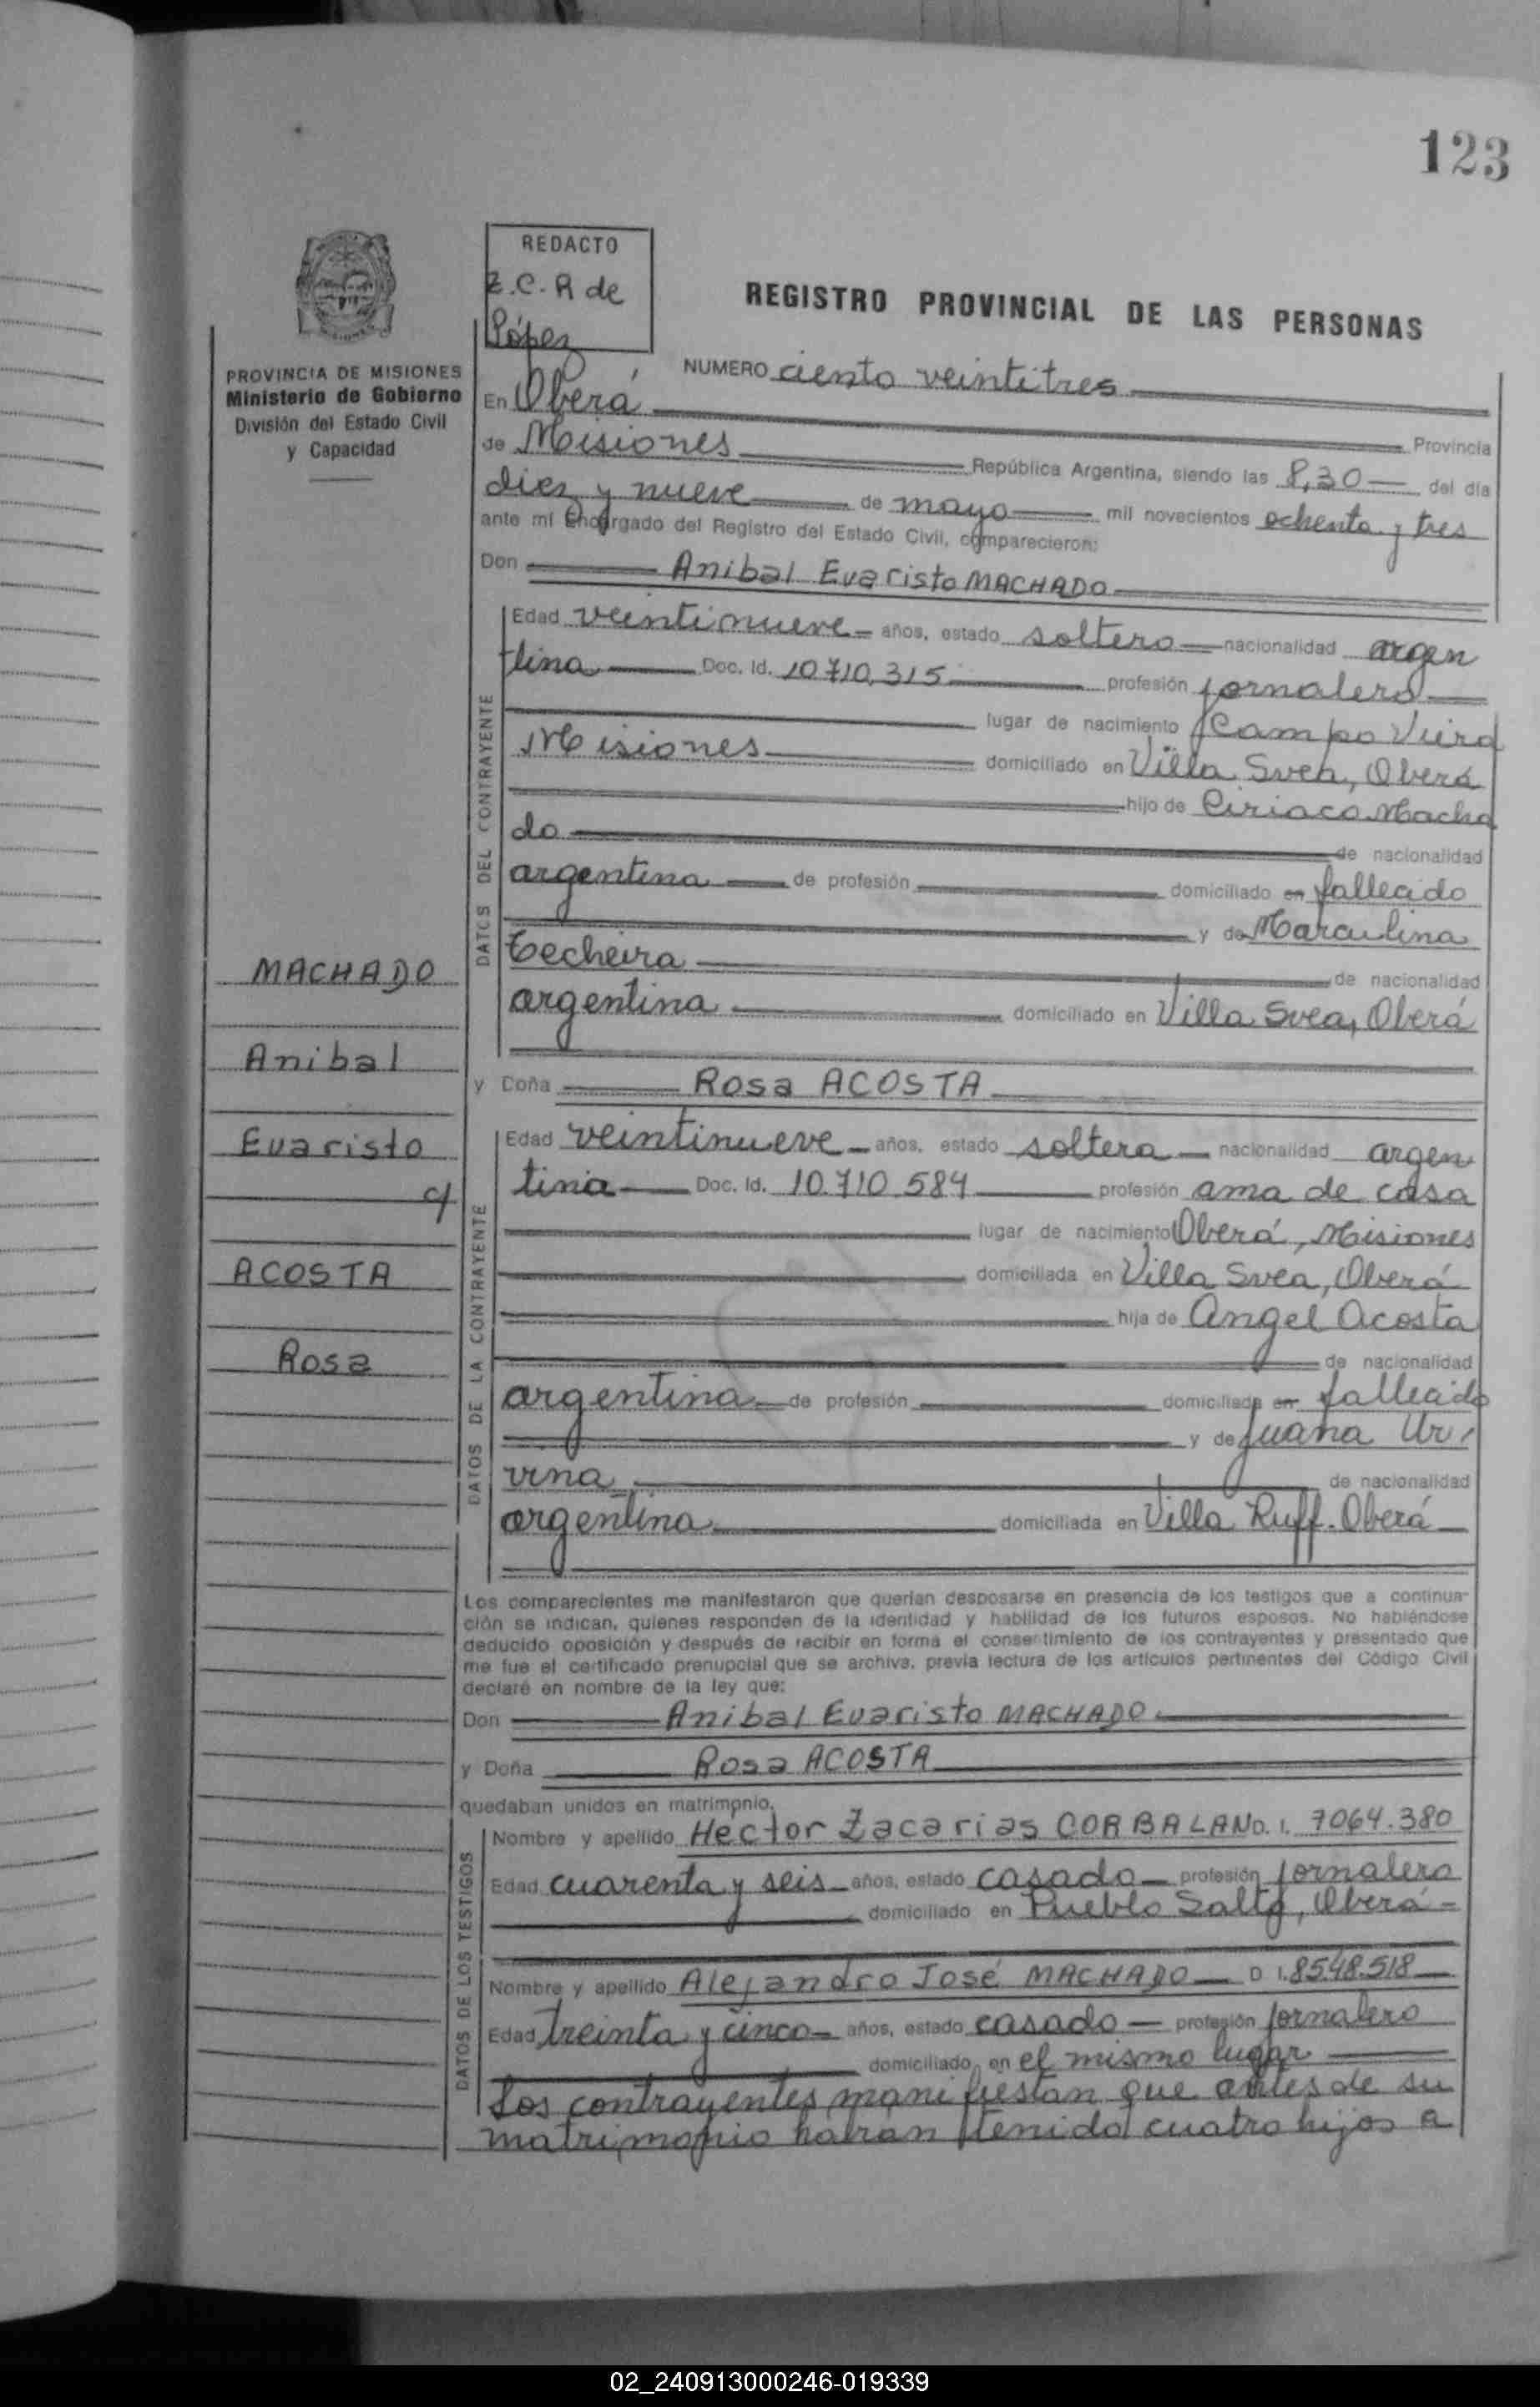 123
REDACTO
Z.C.R de
López
REGISTRO PROVINCIAL DE LAS PERSONAS
PROVINCIA DE MISIONES
Ministerio de Gobierno
División del Estado Civil
y Capacidad
NUMERO ciento veintitres
En Oberá Provincia
de Misiones República Argentina, siendo las 8,30 del día
diez y nueve de mayo mil novecientos ochenta y tres
ante mí Encargado del Registro del Estado Civil, comparecieron:
Don Anibal Evaristo MACHADO
DATOS DEL CONTRAYENTE
Edad veintinueve años, estado soltero nacionalidad argen
tina Doc. Id. 10.710.315 profesión jornalero
lugar de nacimiento Campo Viera
Misiones domiciliado en Villa Svea, Oberá
hijo de Ciriaco Macha
do de nacionalidad
argentina de profesión domiciliado en fallecido
y de Marculina
Techeira de nacionalidad
argentina domiciliado en Villa Svea, Oberá
y Doña Rosa ACOSTA
DATOS DE LA CONTRAYENTE
Edad veintinueve años, estado soltera nacionalidad argen
tina Doc. Id. 10.710.584 profesión ama de casa
lugar de nacimiento Oberá, Misiones
domiciliada en Villa Svea, Oberá
hija de Angel Acosta
de nacionalidad
argentina de profesión domiciliado en fallecido
y de Juana
de nacionalidad
argentina domiciliada en Villa Ruff. Oberá
MACHADO
Anibal
Evaristo
c/
ACOSTA
Rosa
Los comparecientes me manifestaron que querían desposarse en presencia de los testigos que a continua-
ción se indican, quienes responden de la identidad y habilidad de los futuros esposos. No habiéndose
deducido oposición y después de recibir en forma el consentimiento de los contrayentes y presentado que
me fue el certificado prenupcial que se archiva, previa lectura de los artículos pertinentes del Código Civil
declaré en nombre de la ley que:
Don Anibal Evaristo MACHADO
y Doña Rosa ACOSTA
quedaban unidos en matrimonio.
DATOS DE LOS TESTIGOS
Nombre y apellido Hector Zacarias CORBALAN D. I. 7064.380
Edad cuarenta y seis años, estado casado profesión jornalero
domiciliado en Pueblo Salto, Oberá
Nombre y apellido Alejandro José MACHADO D I. 8548.518
Edad treinta y cinco años, estado casado profesión jornalero
domiciliado en el mismo lugar
Los contrayentes manifiestan que antes de su
matrimonio habían tenido cuatro hijos a
02_240913000246-019339